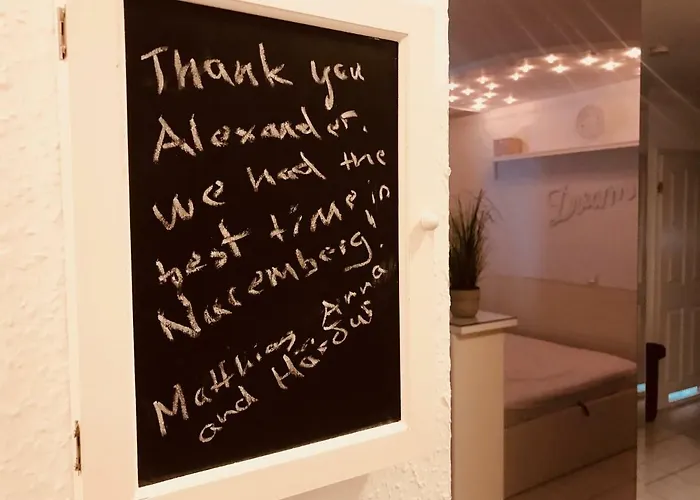 Thank you
Alexander.
We had the
best time in
Nuremberg!
Matthias, Anna
and Härdus
Dream